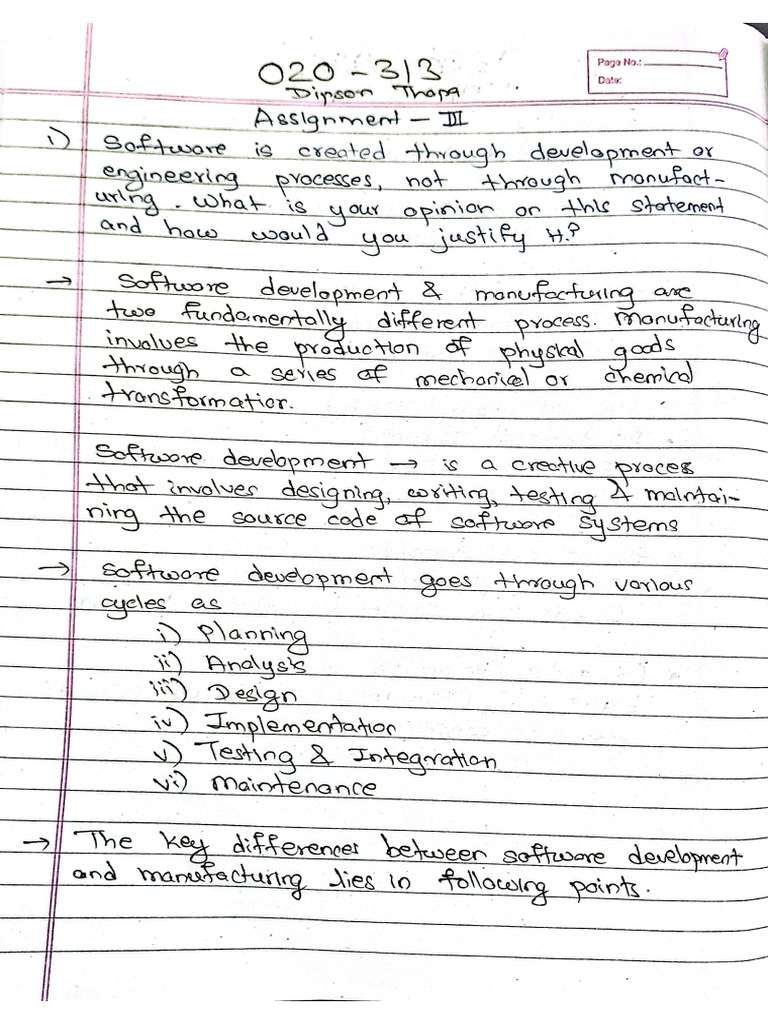 Page No.:
Date:
020 - 313
Dipson Thapa
Assignment - III
i) Software is created through development or
engineering processes, not through manufact-
uring. What is your opinion on this statement
and how would you justify it?
→ Software development & manufacturing are
two fundamentally different process. Manufacturing
involves the production of physical goods
through a series of mechanical or chemical
transformation.
Software development → is a creative proces
that involves designing, writing, testing & maintai-
ning the source code of software systems
→ Software development goes through various
cycles as
i) Planning
ii) Analysis
iii) Design
iv) Implementation
v) Testing & Integration
vi) Maintenance
→ The key differences between software development
and manufacturing lies in following points.